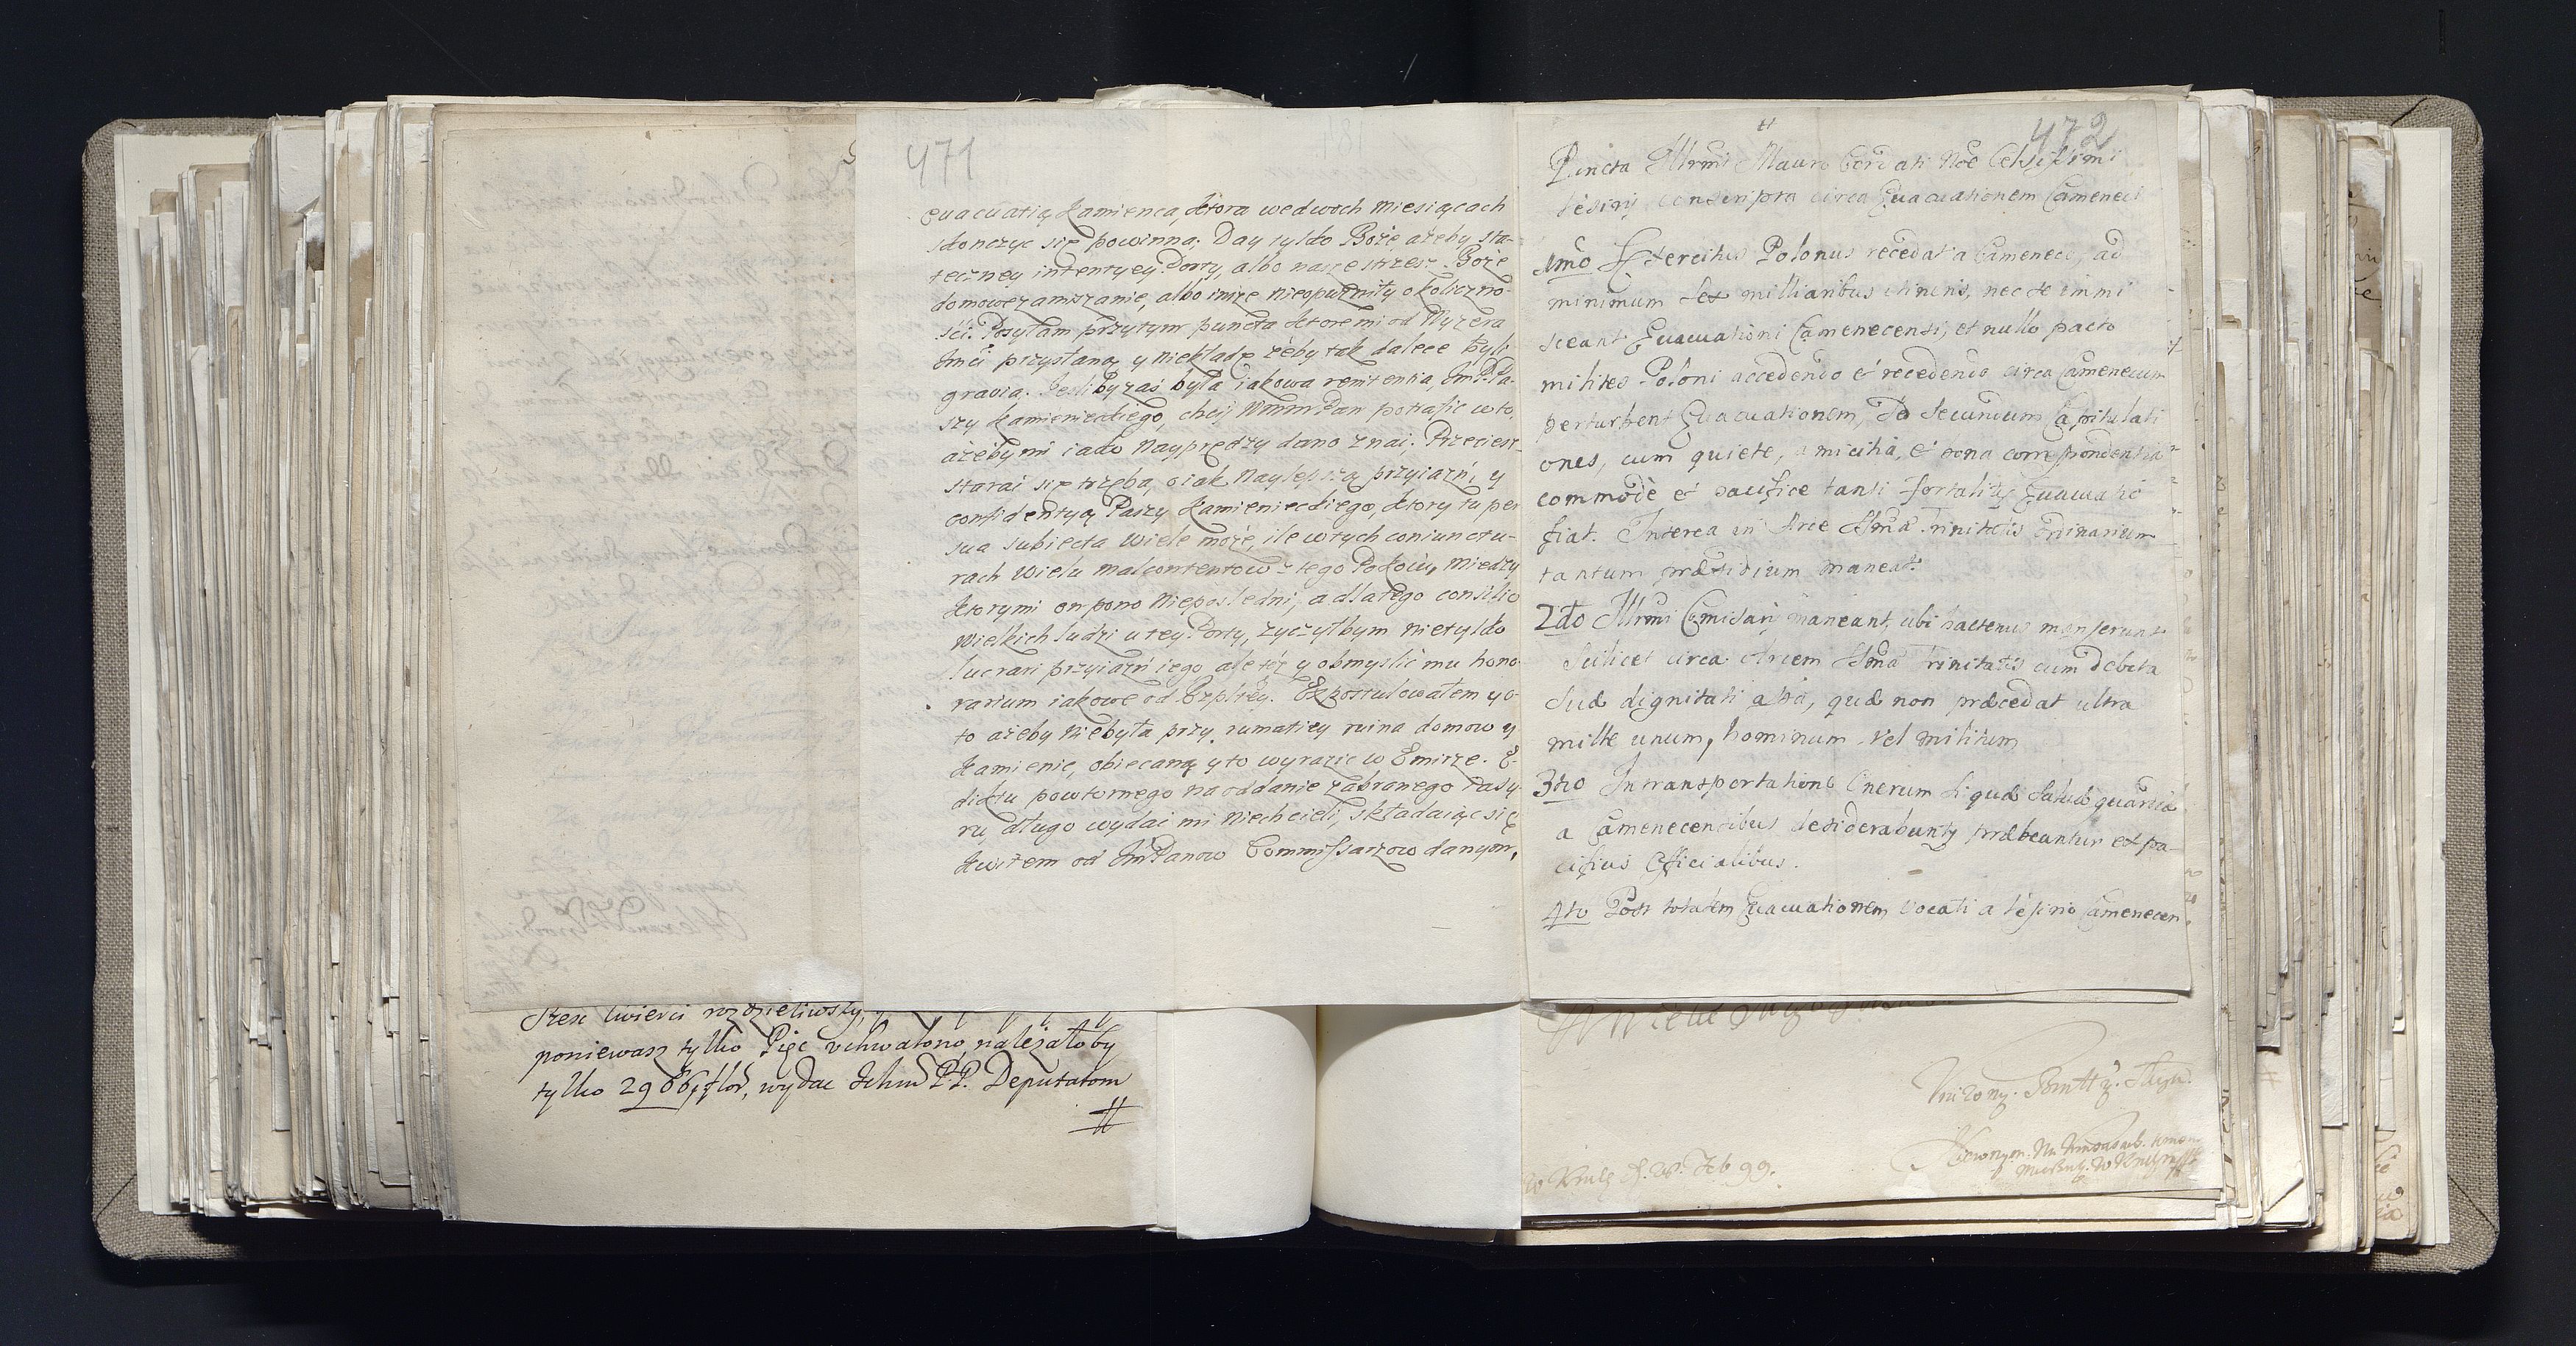 471
evacuatią Kamienca, ktora wedwoch miesiącach
skonczyc się powinna; Day tylko Boże ażeby sta-
teczney intentyey Porty, albo nasze strzesz Boże
domowe zamiszanie, albo insze nieopuzniły okoliczno-
sci. Posyłam przytym puncta ktore mi od Wyzera
Jmci przysłano, y niekładę żeby tak dalece były
gravia. Jesliby zaś była iakowa renitentia, JmP. Pa-
szy Kamienieckiego, chciy WmmPan potrafic w to,
ażeby mi iako nayprędzy dano znai; Przeciesz
starai się trzeba, o iak naylepszą przyiazń, y
confidentyą Paszy Kamienieckiego, ktory tu per
sua subiecta wiele może, ile w tych coniunctu-
rach wielu malcontentow z tego Pokoiu, miedzy
ktorymi on pono nieposledni, a dlatego consilio
wielkich ludzi u tey Porty, zyczyłbym nie tylko
lucrari przyiazń iego ale też y obmyslic mu hono-
rarium iakowe od Rzpltey. Expostulowałem y o
to ażeby niebyła przy rumatiey ruina domow y
Kamienic, obiecano y to wyrazic w Emirze. E-
diktu powtornego na oddanie zabranego Jasy-
ru, długo wydai mi niechcieli, składaiąc się
kwitem od JmPanow Commissarzow danym,
poniewasz tylko Pięc uchwalono, należałoby
tylko 2966 flor, wydac Ichm P.P. Deputatom
472
Puncta Illrmi Mauro Cordati Noe Celsissimi
Vesirij conscripta circa Evacuationem Cameneci
1mo Exercitus Polonus recedat a Cameneco, ad
minimum sex milliaribus itineris, nec se immi
sceant Evacuationi Camenecensi, et nullo pacto
milites Poloni accedendo et recedendo circa Camenecum
perturbent Evacuationem, sed secundum Capitulati
ones, cum quiete, amicitia, et bona correspondentia
commodè et pacifice tanti fortalitij Evacuatio
fiat. Interea in Arce Ssmae Trinitatis ordinarium
tantum praesidium maneat.
2do Illrmi Comisarij maneant, ubi hactenus manserunt
scilicet circa Arcem Ssmae Trinitatis cum debita
suae dignitati
quae non praecedat ultra
mille unum, hominum vel militum
3tio In transportatione Onerum siquae salvae guardiae
a Camenecensibus desiderabunty praebeantur ex pa-
cificis Officialibus.
4to Post totalem Evacuationem, vocati a Vesirio Camenecen